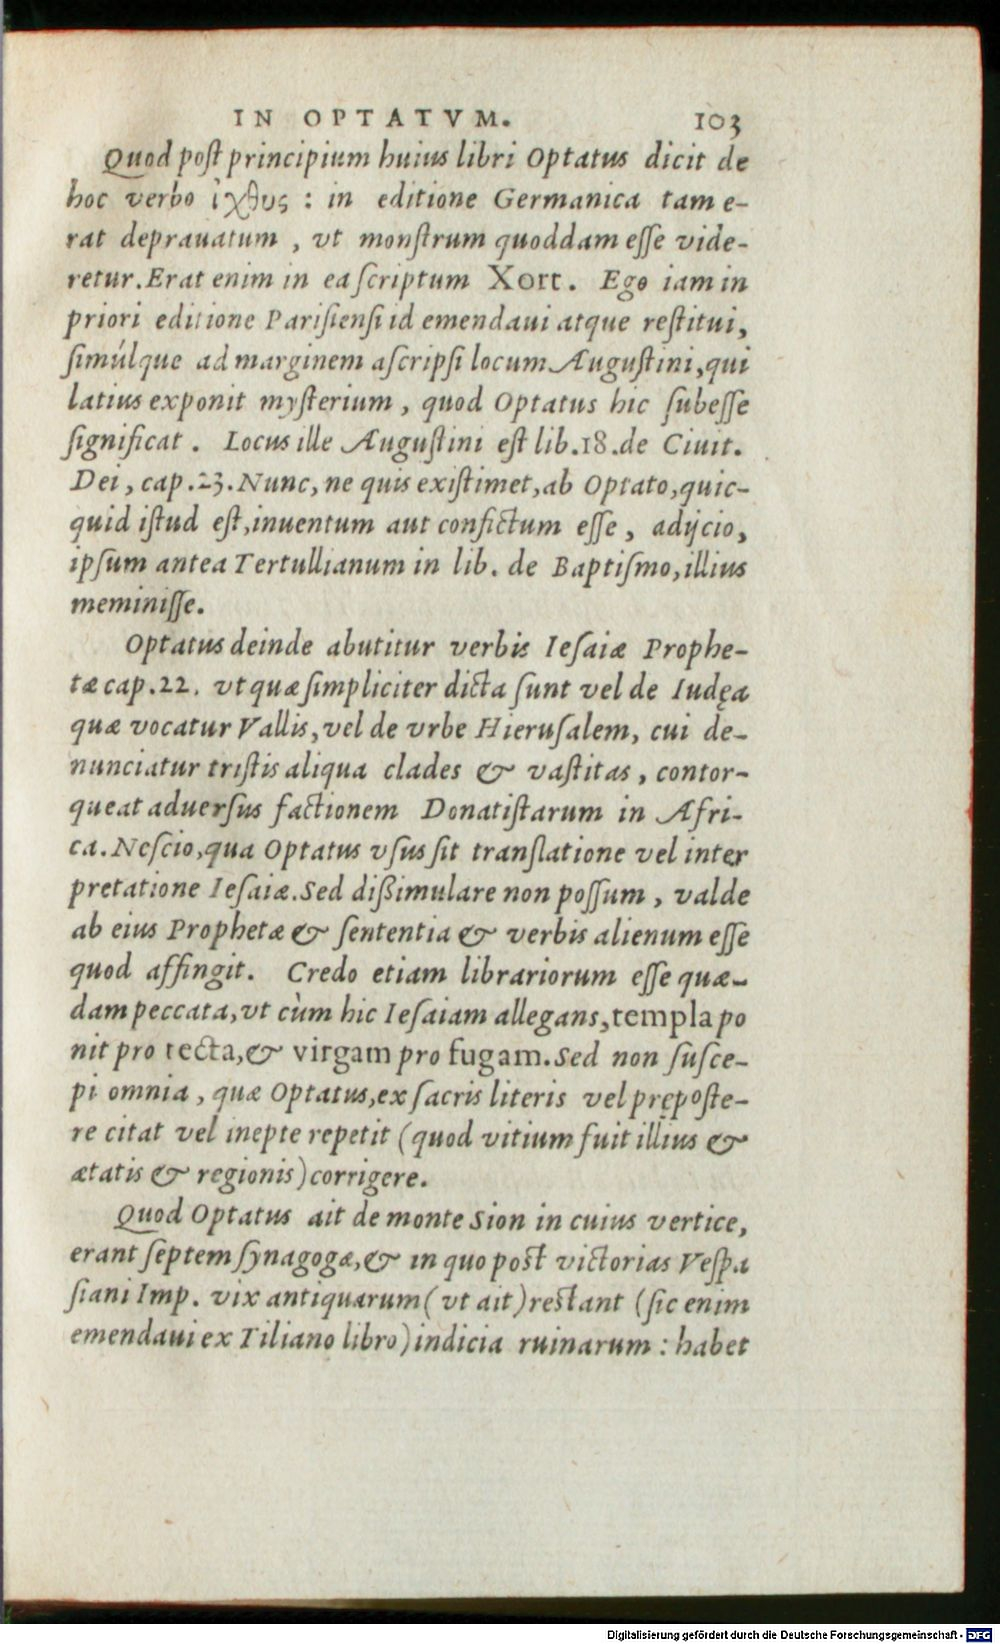 IN OPTATVM. 103
Quod poſt principium huius libri Optatus dicit de
hoc verbo ἰχθυς : in editione Germanica tam e-
rat deprauatum , vt monſtrum quoddam eſſe vide-
retur. Erat enim in ea ſcriptum Xort. Ego iam in
priori editione Pariſienſi id emendaui atque reſtitui,
ſimúlque ad marginem aſcripſi locum Auguſtini, qui
latius exponit myſterium , quod Optatus hic ſubeſſe
ſignificat . Locus ille Auguſtini eſt lib.18.de Ciuit.
Dei, cap.23. Nunc, ne quis exiſtimet, ab Optato, quic-
quid iſtud eſt, inuentum aut confictum eſſe , adijcio,
ipſum antea Tertullianum in lib. de Baptiſmo, illius
meminiſſe.
Optatus deinde abutitur verbis Ieſaiæ Prophe-
tæ cap.22. vt quæ ſimpliciter dicta ſunt vel de Iudęa
quæ vocatur Vallis, vel de vrbe Hieruſalem, cui de-
nunciatur triſtis aliqua clades & vaſtitas , contor-
queat aduerſus factionem Donatiſtarum in Afri-
ca. Neſcio, qua Optatus vſus ſit tranſlatione vel inter
pretatione Ieſaiæ. Sed dißimulare non poſſum , valde
ab eius Prophetæ & ſententia & verbis alienum eſſe
quod affingit. Credo etiam librariorum eſſe quæ-
dam peccata, vt cùm hic Ieſaiam allegans, templa po
nit pro tecta, & virgam pro fugam. Sed non ſuſce-
pi omnia , quæ Optatus, ex ſacris literis vel prępoſte-
re citat vel inepte repetit (quod vitium fuit illius &
ætatis & regionis) corrigere.
Quod Optatus ait de monte Sion in cuius vertice,
erant ſeptem ſynagogæ, & in quo poſt victorias Veſpa
ſiani Imp. vix antiquarum (vt ait) reſtant (ſic enim
emendaui ex Tiliano libro) indicia ruinarum : habet
Digitalisierung gefördert durch die Deutsche Forschungsgemeinschaft - DFG